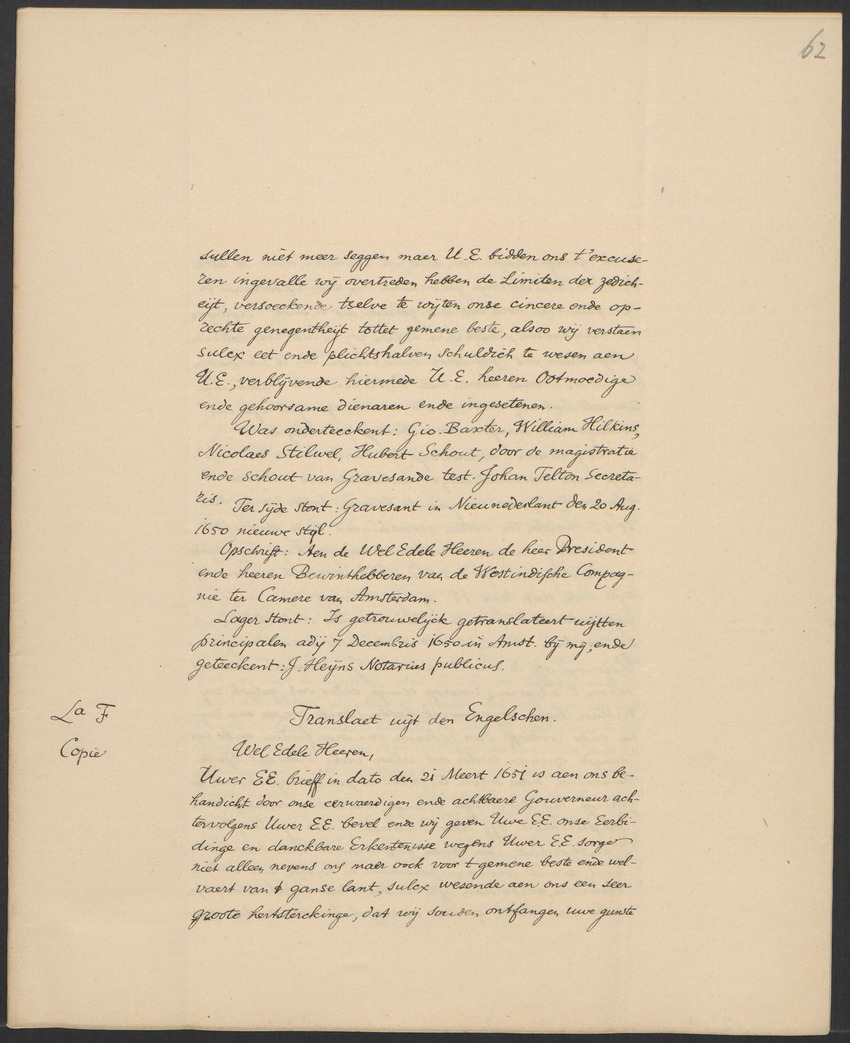 62
sullen niet meer seggen maer U.E. bidden ons t'excuse-
ren ingevalle wij overtreden hebben de Limiten der zedich-
eijt, versoeckende tselve te wijten onse cincere ende op-
rechte genegentheijt tottet gemene beste, alsoo wij verstaen
sulcx eet ende plichtshalven schuldich te wesen aen
U.E., verblijvende hiermede U.E. heeren Ootmoedige
ende gehoorsame dienaren ende ingesetenen.
Was onderteeckent: Gio. Baxter, William Hilkins,
Nicolaes Stilwel, Hubert Schout, door de magistratie
ende schout van Gravesande test. Johan Telton Secreta-
ris. Ter sijde stont: Gravesant in Nieunederlant den 20 Aug.
1650 nieuwe stijl.
Opschrift: Aen de Wel Edele Heeren de heer President
ende heeren Bewinthebberen van de Westindische Compag-
nie ter Camere van Amsterdam.
Lager stont: Is getrouwelijck getranslateert uijtten
principalen adij 7 Decembris 1650 in Amst. bij mij, ende
geteeckent: J. Heijns Notarius publicus.
La F
Copie
Translaet uijt den Engelschen.
Wel Edele Heeren,
Uwer EE. brieff in dato den 21 Meert 1651 is aen ons be-
handicht door onse eerwaerdigen ende achtbaere Gouverneur ach-
tervolgens Uwer E.E. bevel ende wij geven Uwe E.E. onse Eerbi-
dinge en danckbare Erkentenisse wegens Uwer E.E. sorge
niet alleen nevens ons maer oock voor t gemene beste ende wel-
vaert van t ganse lant, sulcx wesende aen ons een seer
groote hertsterckinge, dat wij souden ontfangen uwe gunste